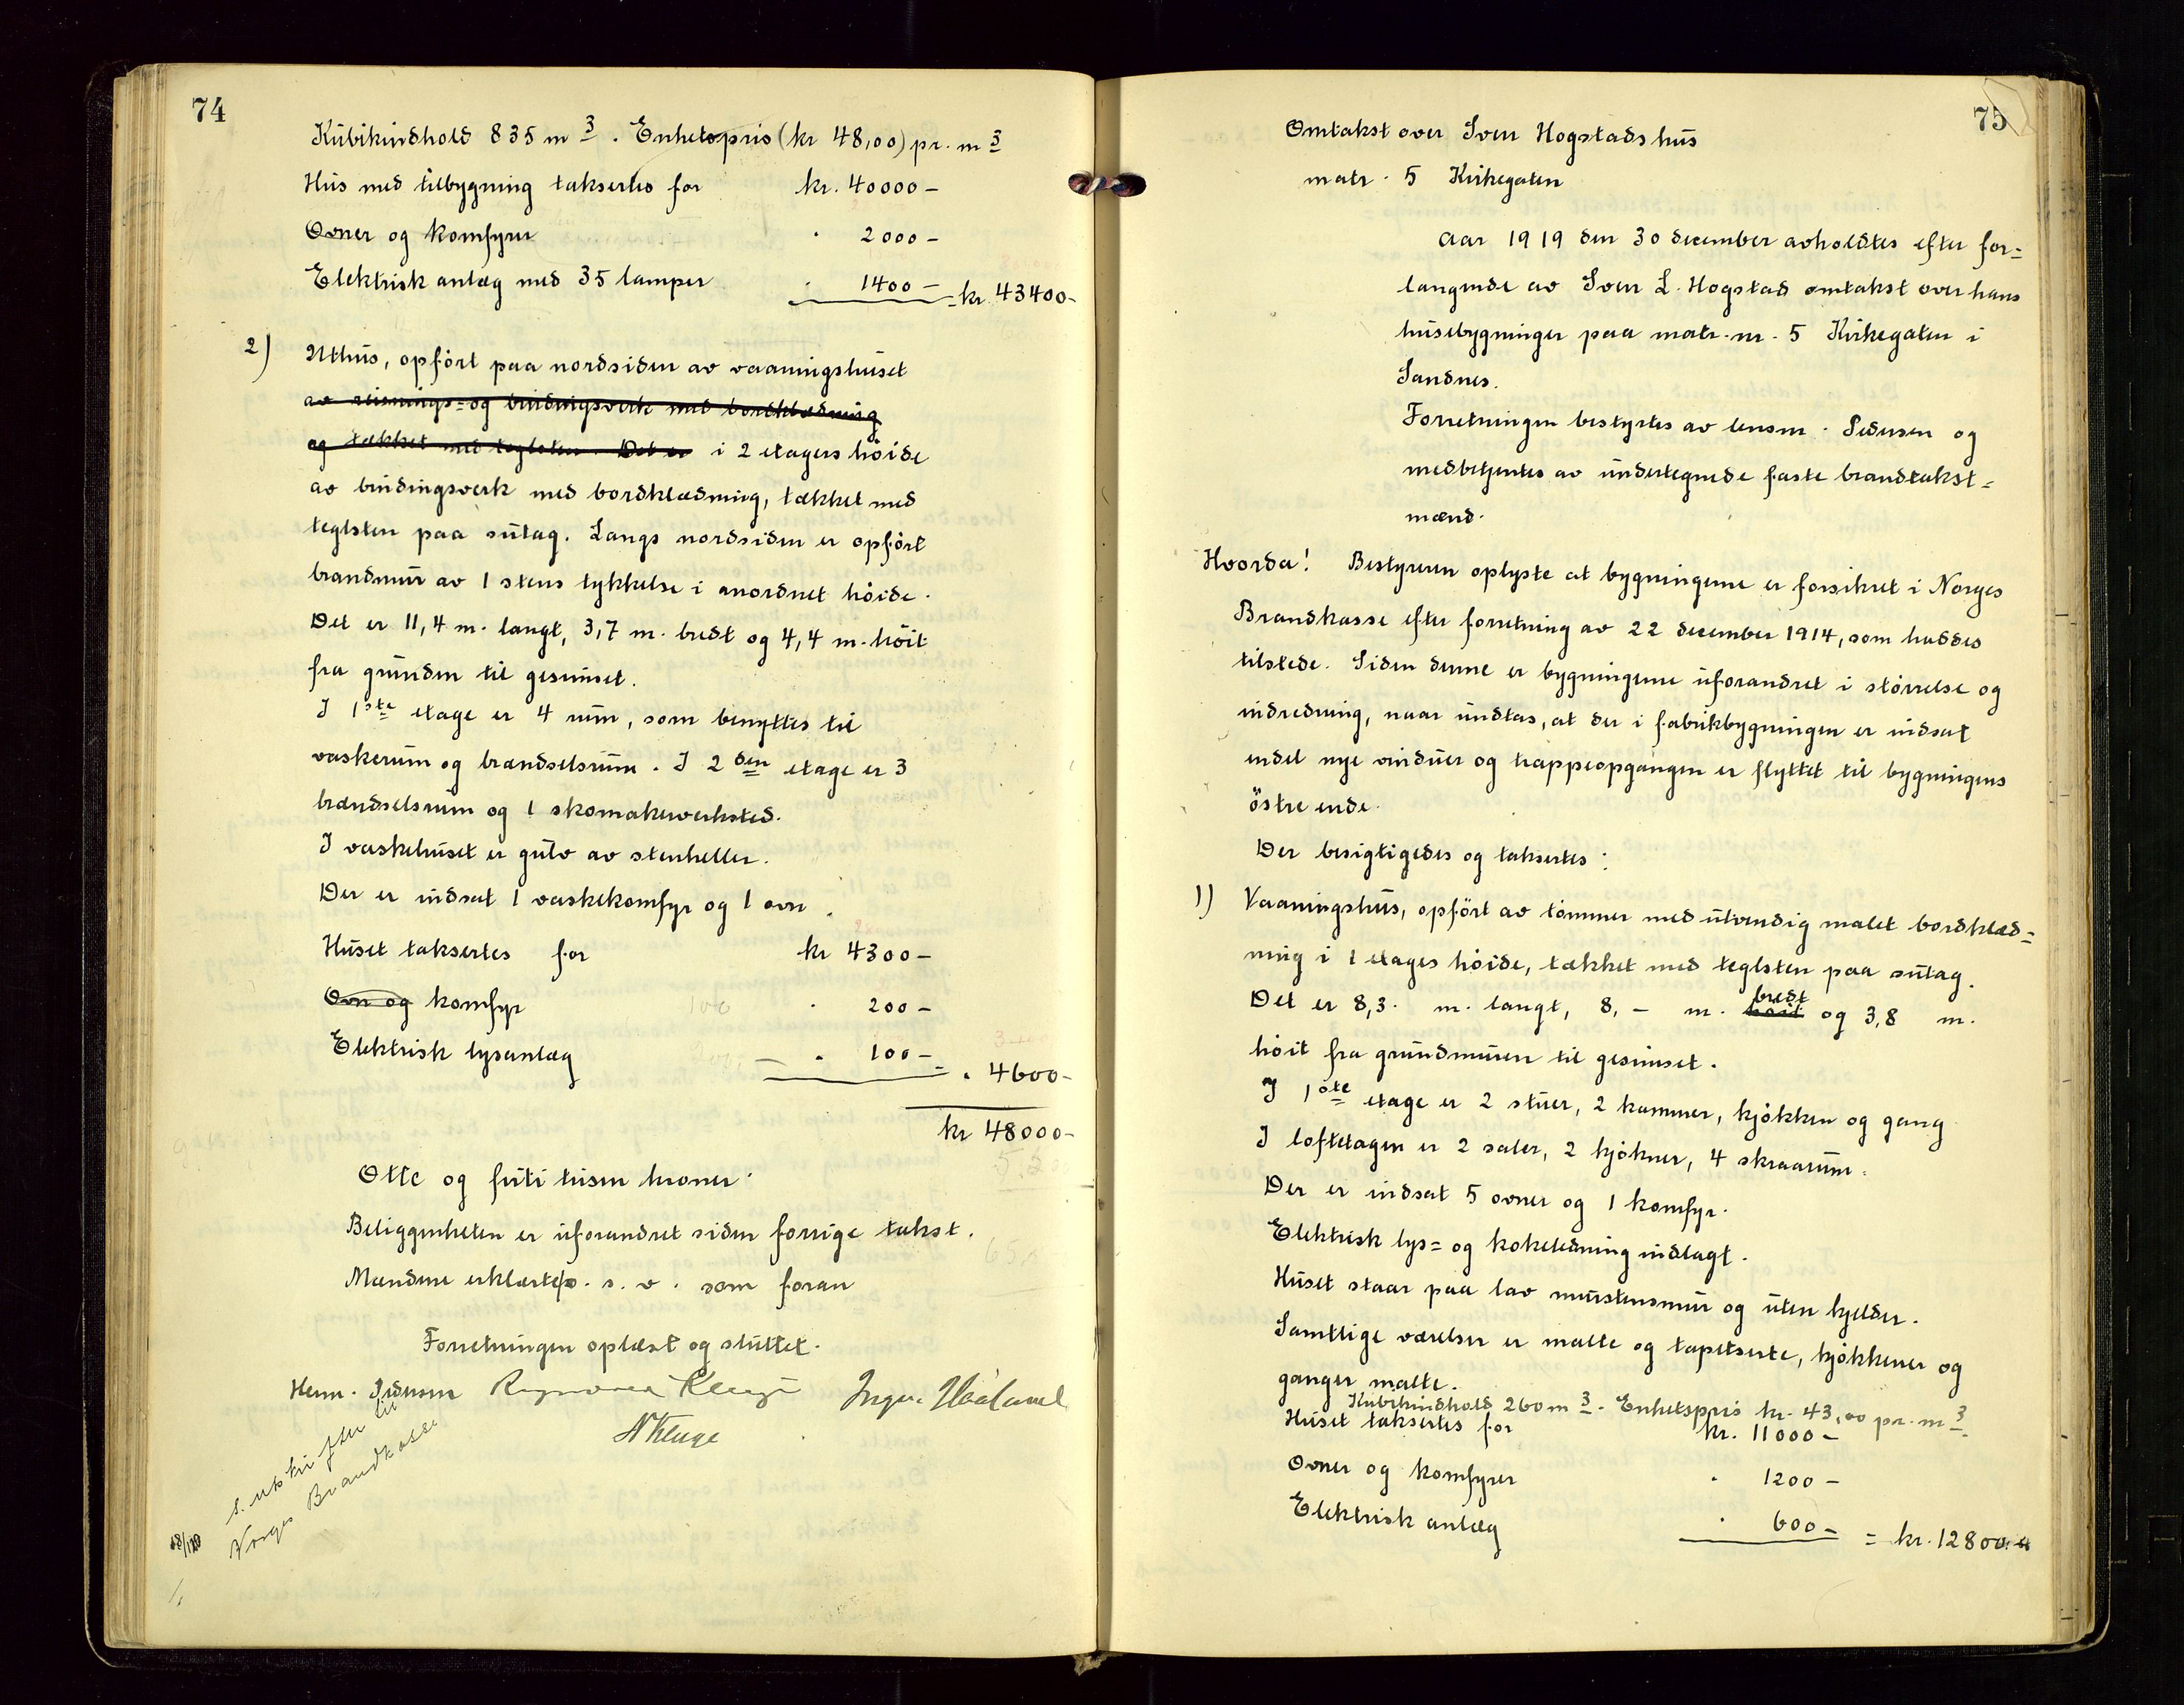 74
Kubikindhold 835 m 3. Enhetspris (kr 48,00) pr. m 3
Hus med tilbygning takserles for kr. 40000 –
Ovner og komfyrer . 2000 –
Elektrisk anlæg med 35 lamper . 1400 – = kr. 43400 –
2) Uthus, opført paa nordsiden av vaaningshuset
av reisnings= og bindingsverk med bordklædning
og tækket med teglsten. Det er i 2 etagers høide
av bindingsverk med bordklædning, tækket med
teglsten paa sutag. Langs nordsiden er opført
brandmur av 1 stens tykkelse i anordnet høide.
Det er 11,4 m. langt, 3,7 m. bredt og 4,4 m. høit
fra grunden til gesimset.
I 1ste etage er 4 rum, som benyttes til
vaskerum og brændselsrum. I 2den etage er 3
brændselsrum og 1 skomakerverksted.
I vaskehuset er gulv av stenheller.
Der er indsat 1 vaskekomfyr og 1 ovn.
Huset taksertes for kr 4300 –
Ovn og komfyr 100 . 200 –
Elektrisk lysanlæg . 100 – = . 4600 –
kr 48000 –
Otte og firti tusen kroner.
Beliggenheten er uforandret siden forrige takst.
Mændene erklærte o. s. v. som foran
Forretningen oplæst og sluttet.
Henr. Sidensen Rasmus Kluge Ingv. Haaland
N Kluge
s. utskrifter til
Norges Brandkasse
75
Omtakst over Sven Hogstads hus
matr. 5 Kirkegaten
Aar 1919 den 30 december avholdtes efter for=
langende av Sven L. Hogstad omtakst over hans
husebygninger paa matr. nr. 5 Kirkegaten i
Sandnes.
Forretningen bestyrtes av lensm. Sidensen og
medbetjentes av undertegnede faste brandtakst=
mænd.
Hvorda! Bestyreren oplyste at bygningerne er forsikret i Norges
Brandkasse efter forretning av 22 december 1914, som haddes
tilstede. Siden denne er bygningerne uforandret i størrelse og
indredning, naar undtas, at der i fabrikbygningen er indsat
endel nye vinduer og trappeopgangen er flyttet til bygningens
østre ende.
Der besigtigedes og taksertes:
1) Vaaningshus, opført av tømmer med utvendig malet bordklæd=
ning i 1 etages høide, tækket med teglsten paa sutag.
Det er 8,3. m. langt, 8, – m. høit bredt og 3,8 m.
høit fra grundmuren til gesimset.
I 1ste etage er 2 stuer, 2 kammer, kjøkken og gang
I loftetagen er 2 saler, 2 kjøkner, 4 skraarum.
Der er indsat 5 ovner og 1 komfyr.
Elektrisk lys= og kokeledning indlagt.
Huset staar paa lav murstensmur og uten kjelder.
Samtlige værelser er malte og tapetserte, kjøkkener og
ganger malte.
Kubikindhold 260 m 3. Enhetspris kr. 43,00 pr. m 3.
Huset taksertes for kr. 11000 –
Ovner og komfyrer . 1200 –
Elektrisk anlæg . 600 – = kr. 12800